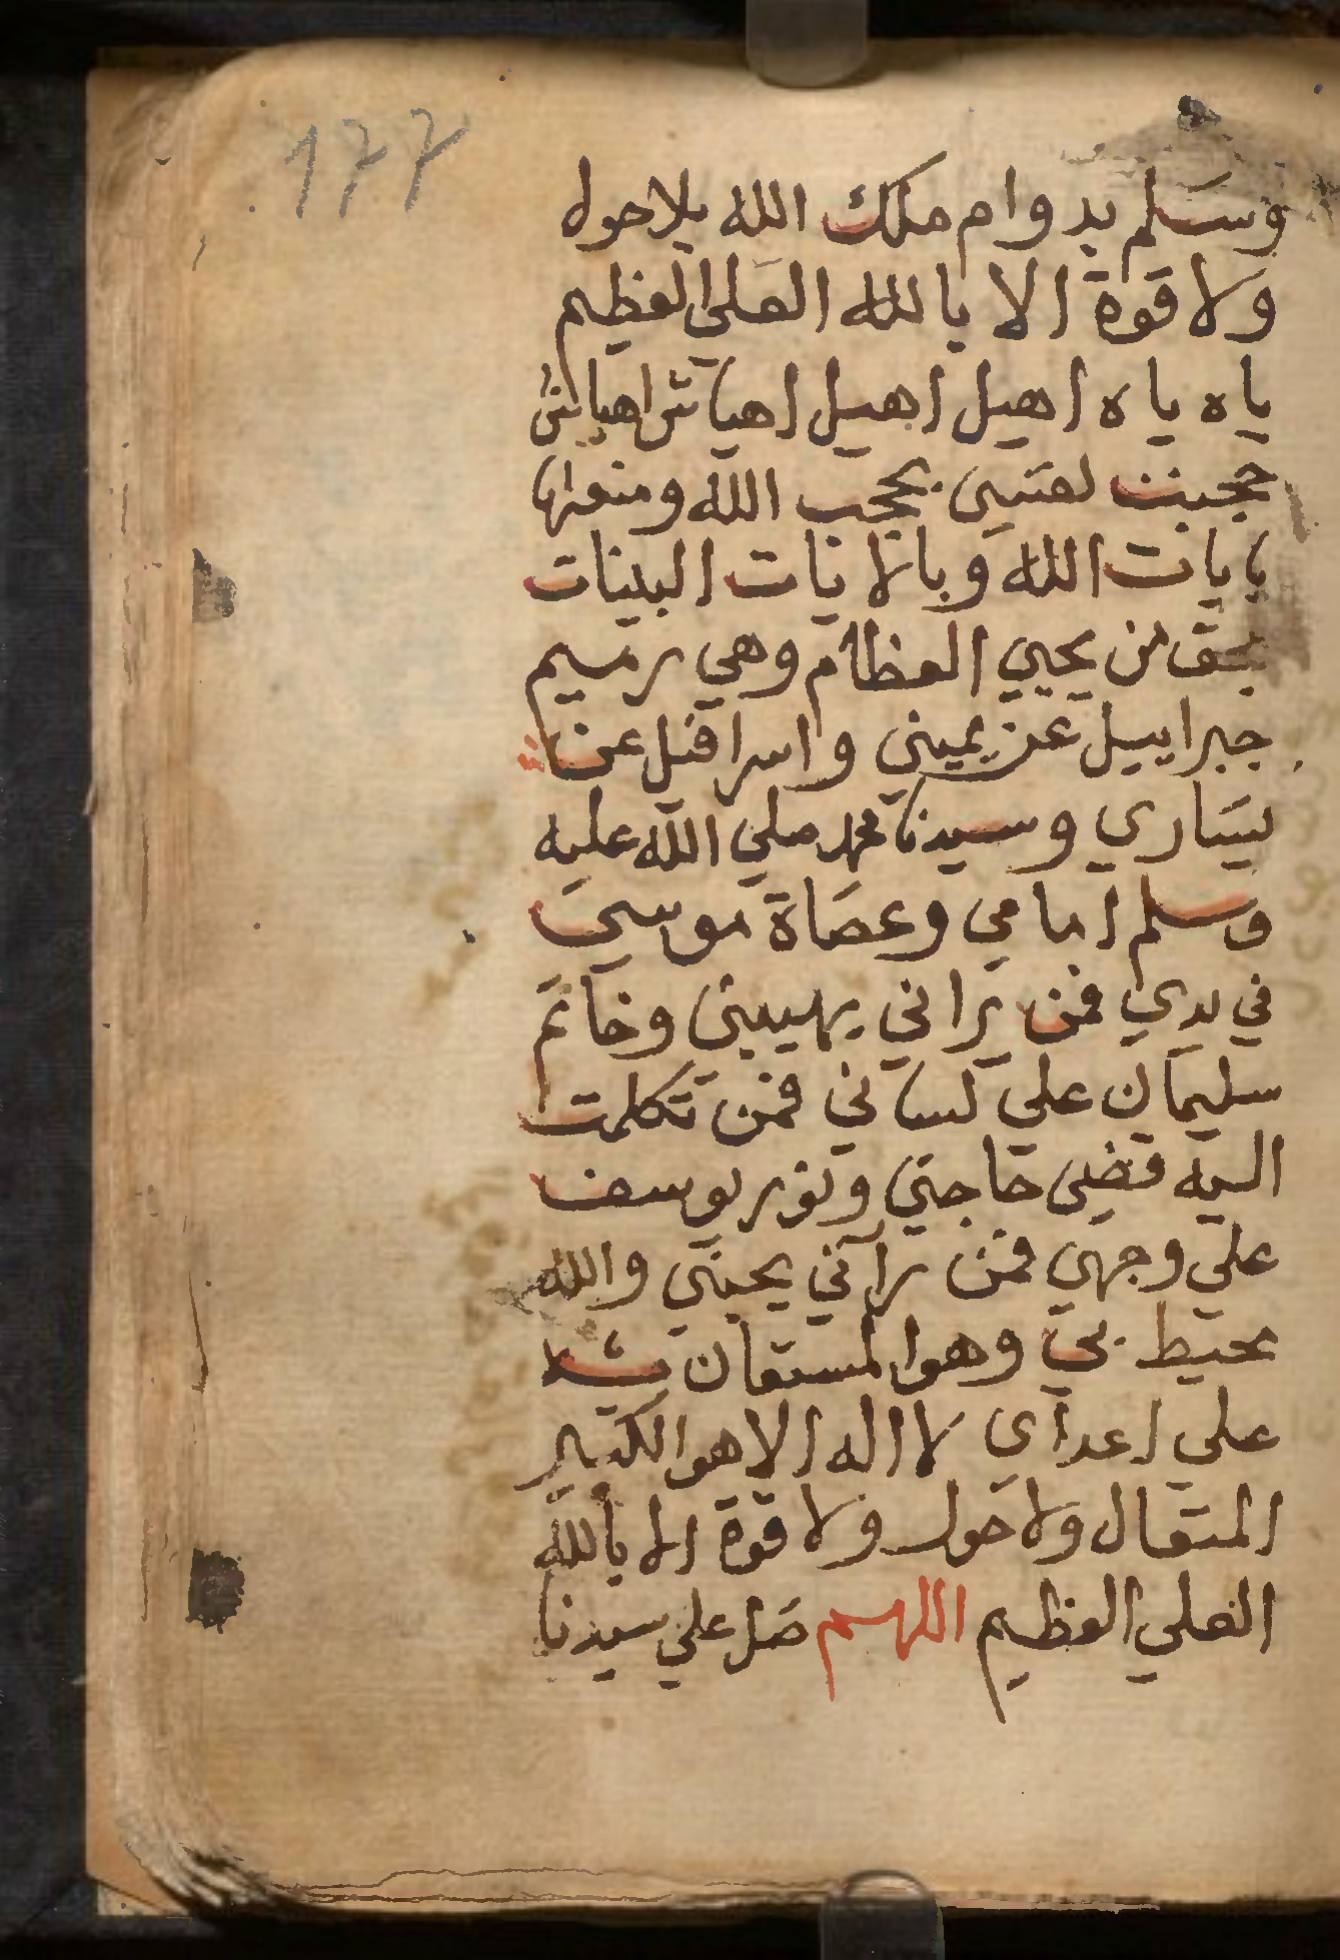 177
وسلم بدوام ملك الله بلاحول
ولا قوة الا بالله العلي العظيم
ياه ياه اهيل اهيل اهياش اهياش
حجبت نفسي بحجب الله ومنعتها
بايات الله وبالايات البينات
بحق من يحيي العظام وهي رميم
جبراييل عن يميني واسرافيل عن
يساري وسيدنا محمد صلي الله عليه
وسلم امامي وعصاة موسي
في يدي فمن يراني يهيبني وخاتم
سليمان علي لساني فمن تكلمت
اليه قضى حاجتي ونور يوسف
علي وجهي فمن رآني يحبني والله
محيط بي وهو المستعان
علي اعداي لا اله الا هو الكبير
المتعال ولا حول ولا قوة الا بالله
العلي العظيم اللهم صل علي سيدنا